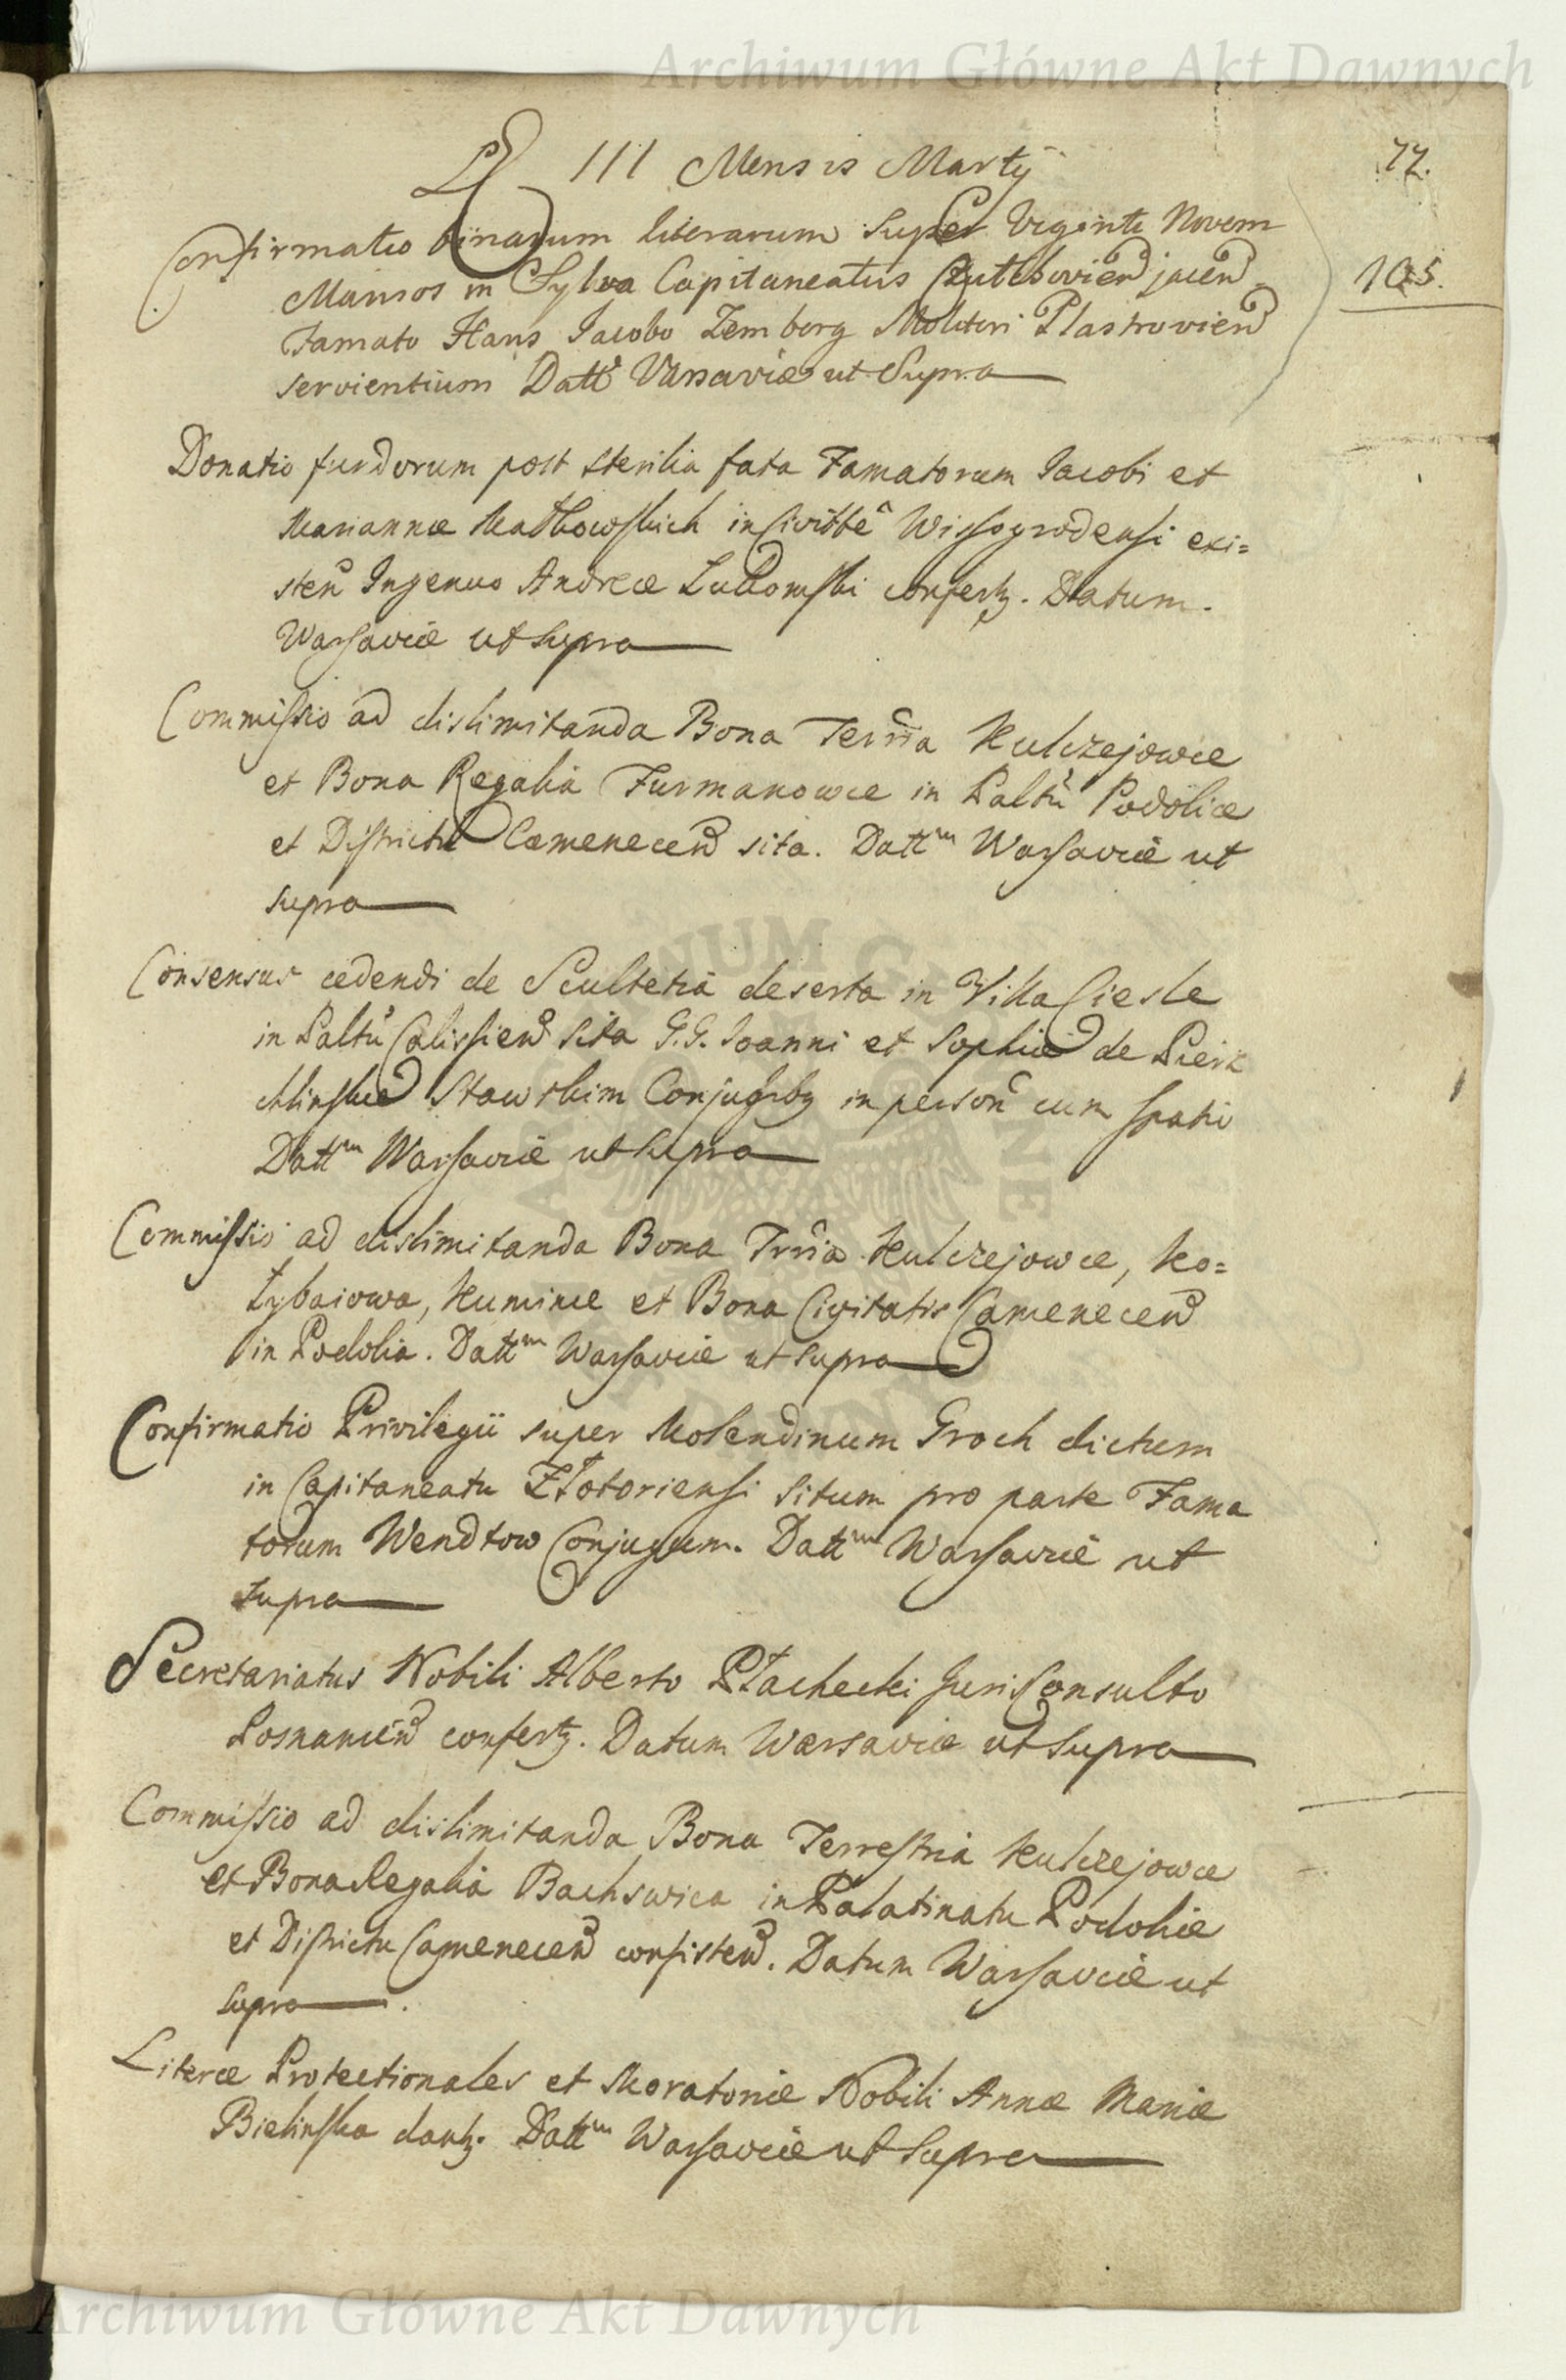 Archiwum Główne Akt Dawnych
III Mensis Martij
77.
Confirmatio binarum literarum super Viginti Novem
Mansos in Sylva Capitaneatus jacen
105.
Famato Hans Jacobo Zemberg Molitori
servientium Datt Varsaviæ ut Supra
Donatio fundorum post sterilia fata Famatorum Jacobi et
Mariannæ Matkowskich in Civitte Wissogrodensi exi=
sten Ingenuo Andreæ confertz. Datum.
Warsaviæ ut supra
Commissio ad dislimitanda Bona Terria Kulczejowce
et Bona Regalia Furmanowce in Paltu Podoliæ
et Districtu Camenecen sita. Dattm Warsaviæ ut
supra
Consensus cedendi de Scultetia deserta in Villa Ciesle
in Paltu Calissien sita G.G. Joanni et Sophiæ de Pierz
chlinskie Stawskim Conjugibz in person cum spatio
Dattm Warsaviæ ut supra
Commissio ad dislimitanda Bona Trria Kulczejowce, Ko=
łybaiowa, Kumince et Bona Civitatis Camenecen
in Podolia. Dattm Warsaviæ ut supra
Confirmatio Privilegii super Molendinum Groch dictum
in Capitaneatu Złotoriensi situm pro parte Fama
torum Wendtow Conjugum. Dattm Warsaviæ ut
supra
Secretariatus Nobili Alberto Płachecki JurisConsulto
Posnanien confertz. Datum Warsaviæ ut supra
Commissio ad dislimitanda Bona Terrestria Kulczejowce
et Bona Regalia in Palatinatu Podoliæ
et Districtu Camenecen consisten. Datum Warsaviæ ut
supra.
Literæ Protectionales et Moratoriæ Nobili Annæ Mariæ
Bielinska dantz. Dattm Warsaviæ ut supra
Archiwum Główne Akt Dawnych